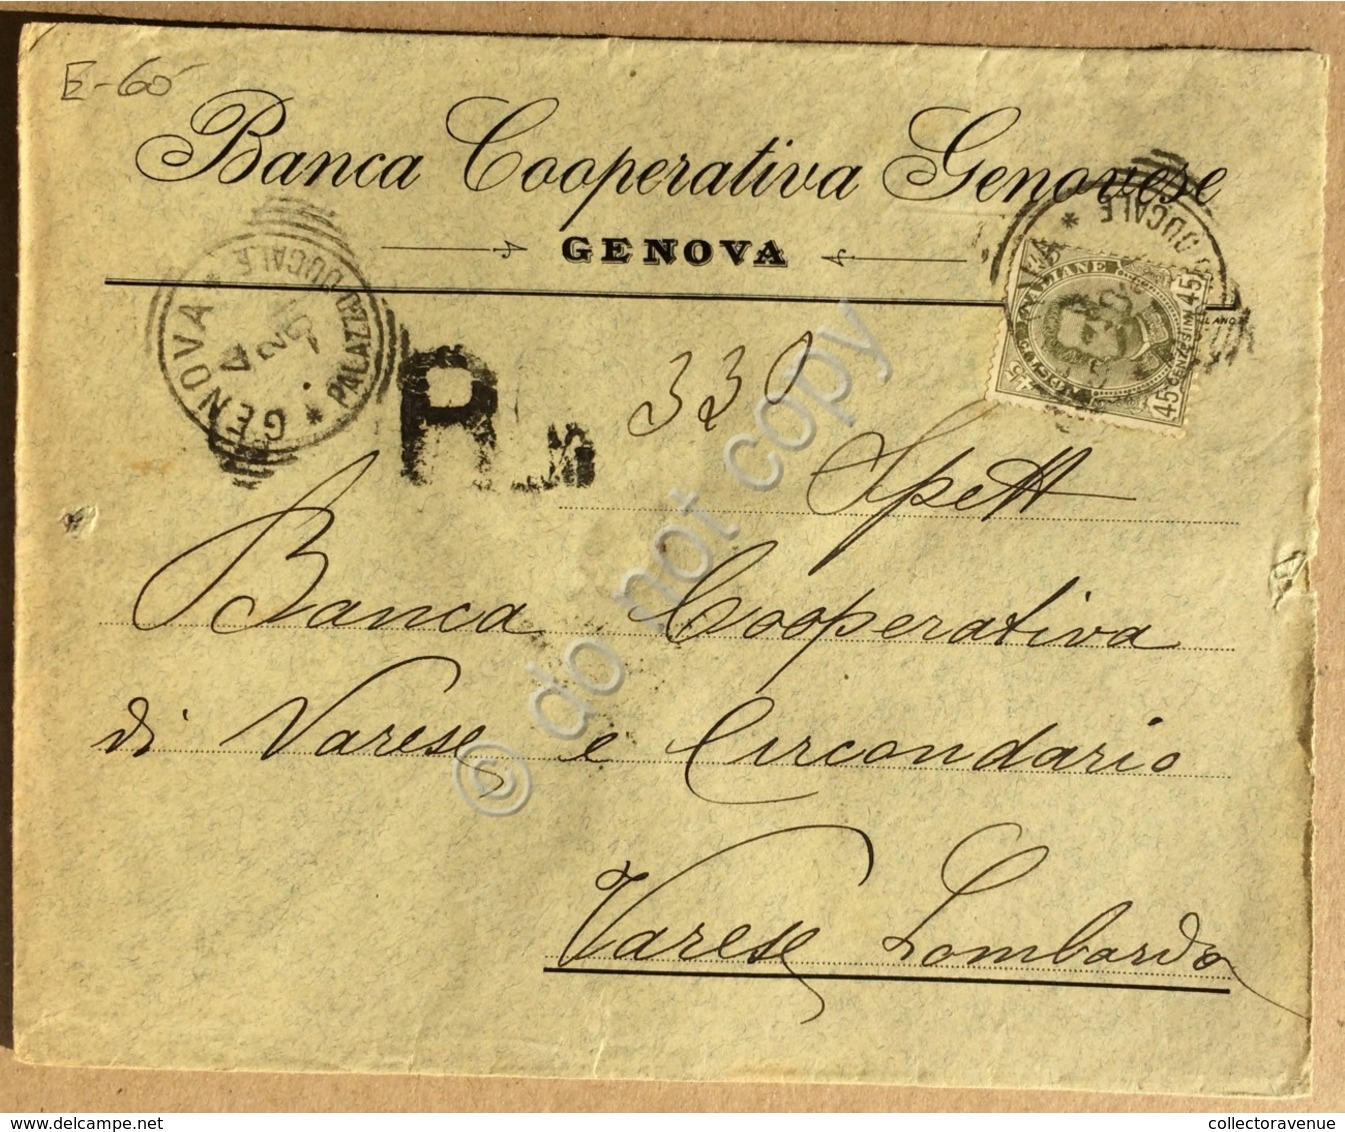 E-60
Banca Cooperativa Genovese
GENOVA
GENOVA * PALAZZO DUCALE *
DUCALE *
45 CENTESIMI 45
R
330
Spett
Banca Cooperativa
di Varese e Circondario
Varese Lombardo
© do not copy
collectoravenue.com